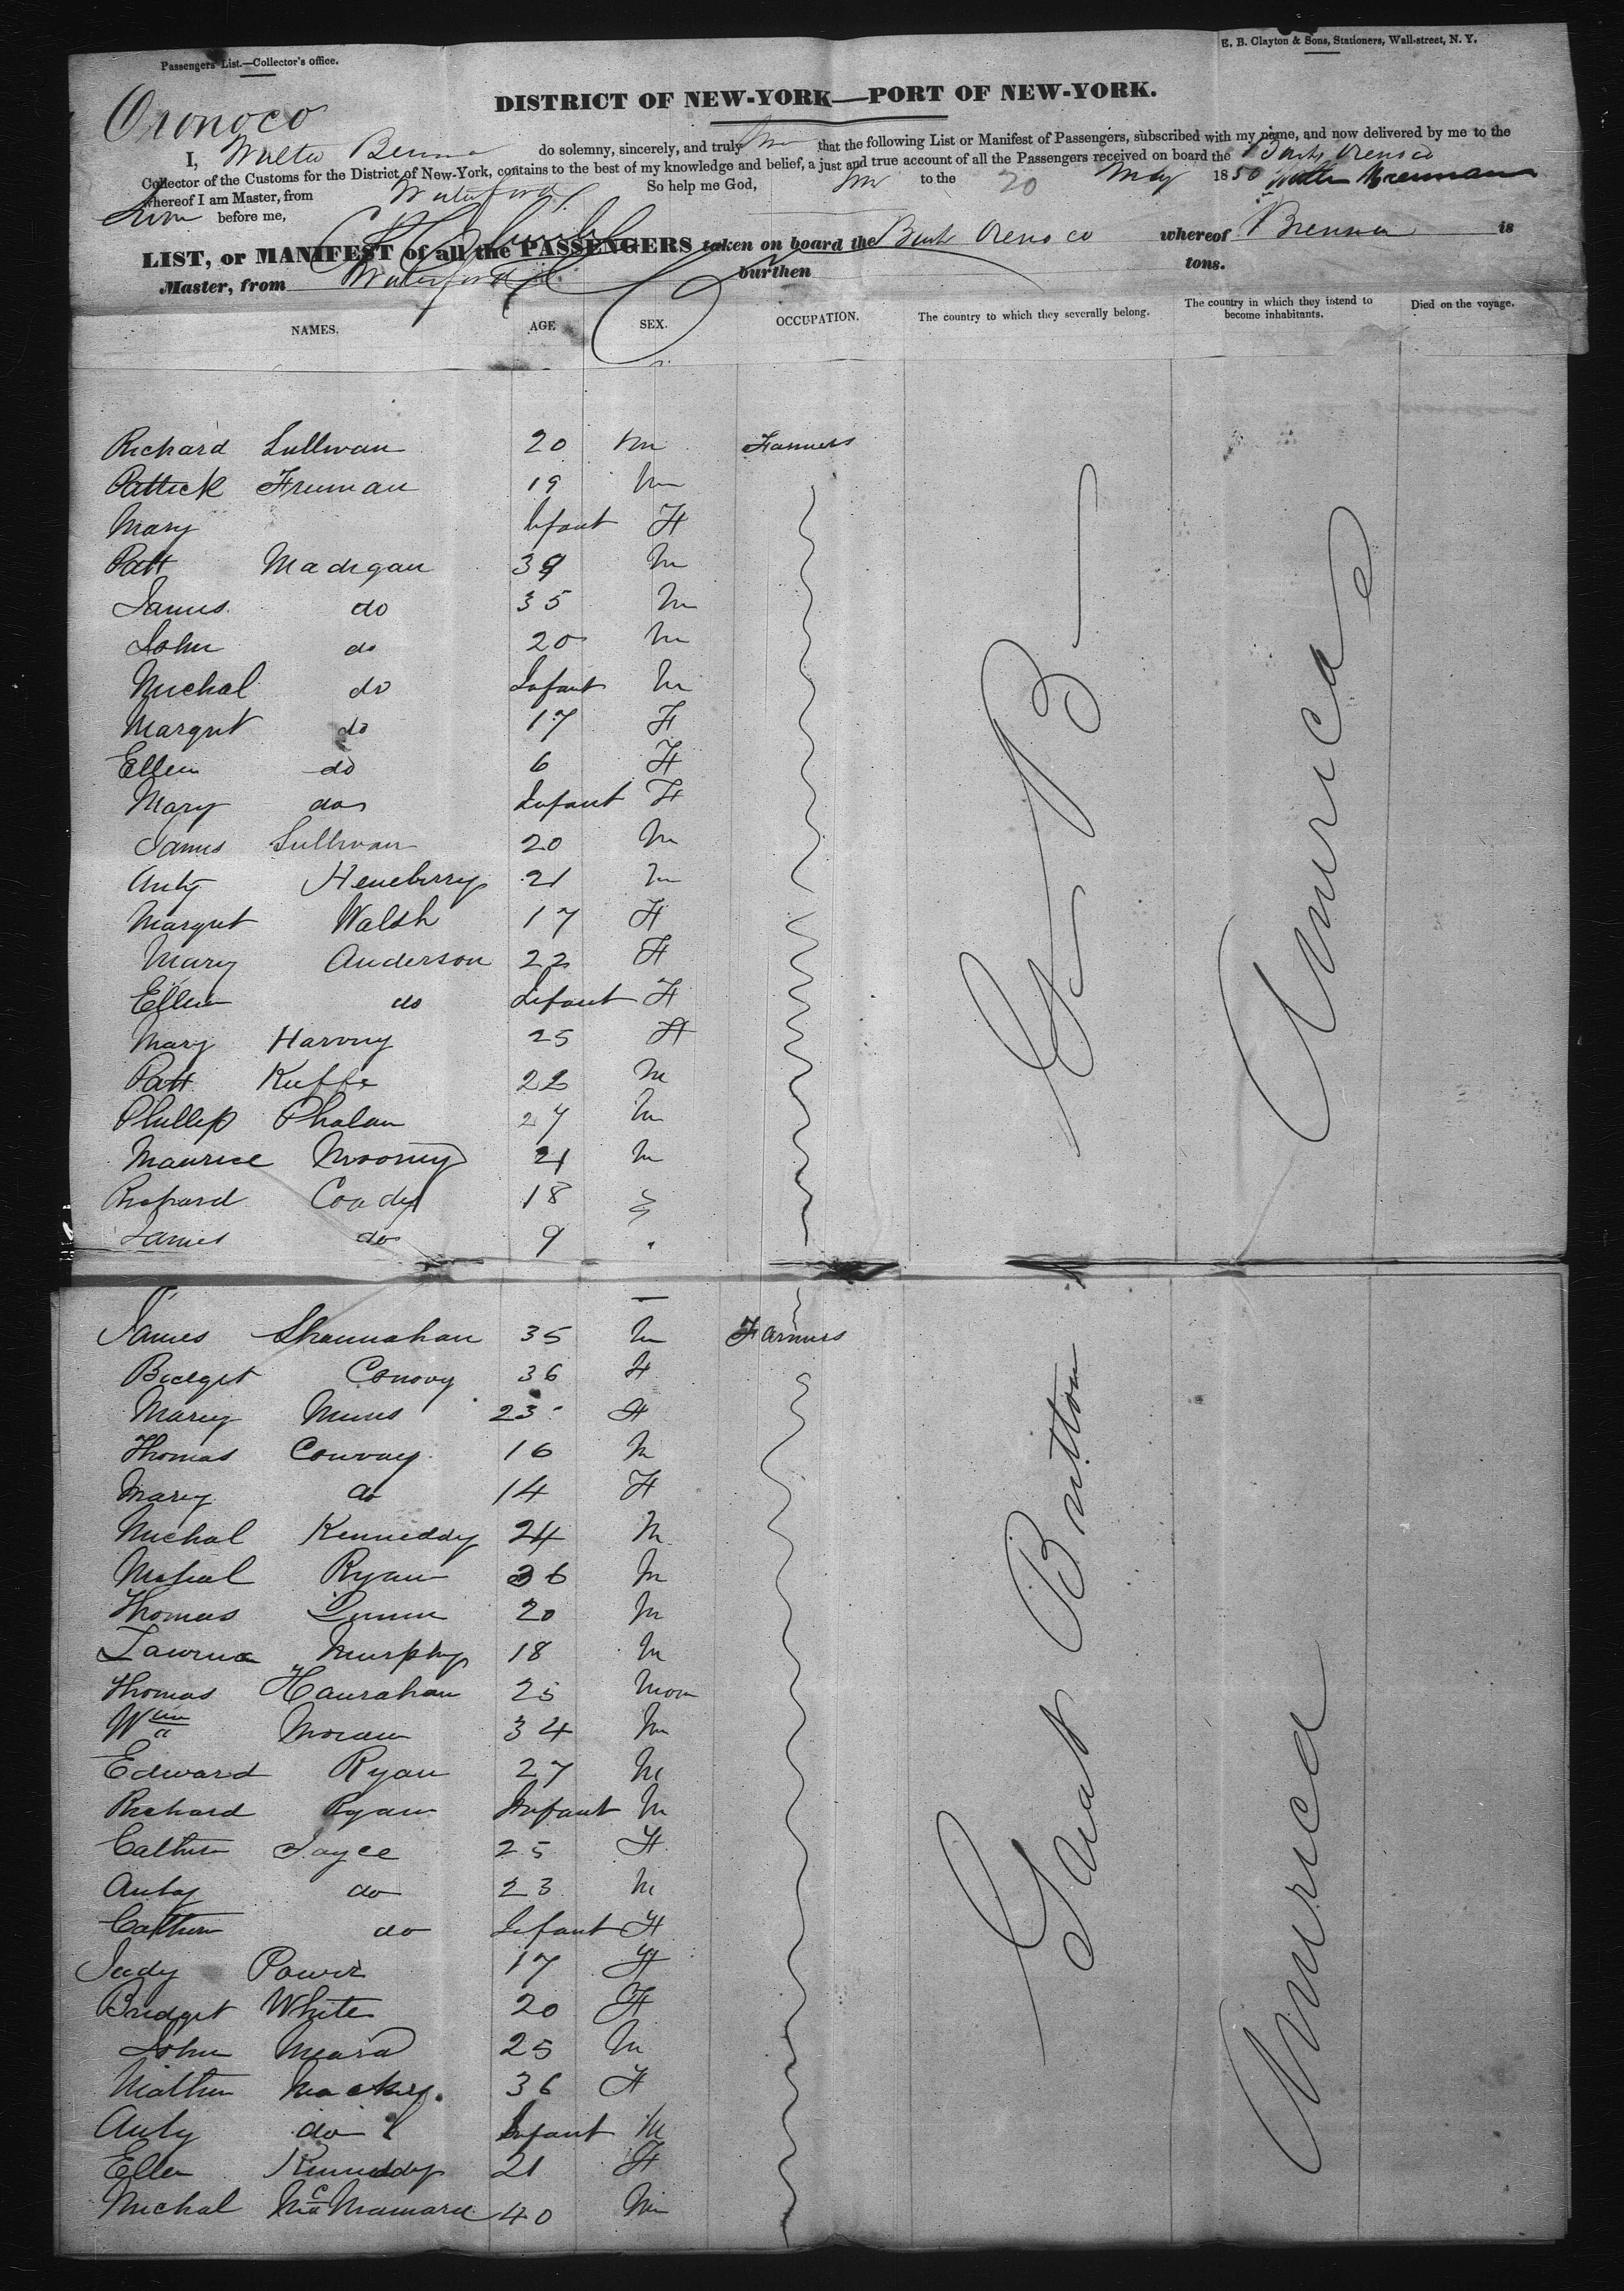 Passengers' List.—Collector's office.
E. B. Clayton & Sons, Stationers, Wall-street, N. Y.
Oronoco
DISTRICT OF NEW-YORK—PORT OF NEW-YORK.
I, Walter do solemny, sincerely, and truly that the following List or Manifest of Passengers, subscribed with my name, and now delivered by me to the
Collector of the Customs for the District of New-York, contains to the best of my knowledge and belief, a just and true account of all the Passengers received on board the Bark Orenoco
whereof I am Master, from Waterford So help me God,
to the 20 May 1850 Walter Brennan
before me,
LIST, or MANIFEST of all the PASSENGERS taken on board the Bark Orenoco whereof Brennan is
Master, from Waterford burthen tons.
NAMES. AGE SEX. OCCUPATION. The country to which they severally belong. The country in which they intend to become inhabitants. Died on the voyage.
Richard Sullivan 20 m Farmers
Pattick Freeman 19 m
Mary Infant F
Patt Madigan 39 m
James do 35 m
John do 20 m
Michal do Infant m
Margret do 17 F
Ellen do 6 F
Mary do Infant F
James Sullivan 20 m
Anty Heneberry 21 m
Margret Walsh 17 F
Mary Anderson 22 F
Ellen do Infant F
Mary Harvny 25 F
Patt Kuffe 22 m
Phillip Phalan 27 m
Maurice Mooney 21 m
Richard Coady 18
James do 9
G B
America
James Shannahan 35 m Farmers
Bridget Conovy 36 F
Mary 23 F
Thomas Convay 16 m
Mary do 14 F
Michal Kenneddy 24 m
Michal Ryan 36 m
Thomas 20 m
Lawrnce Murphy 18 m
Thomas Hanrahan 25
Wm Moran 34 m
Edward Ryan 27 m
Richard Ryan Infant m
Cathrn Joyce 25 F
Anty do 23 m
Cathrn do Infant F
Judy Power 17 F
Bridget White 20 F
John Meara 25 m
Mackey 36 F
Anty do Infant m
Ellen Kenneddy 21 F
Michal McNamara 40 m
Great Britton
America